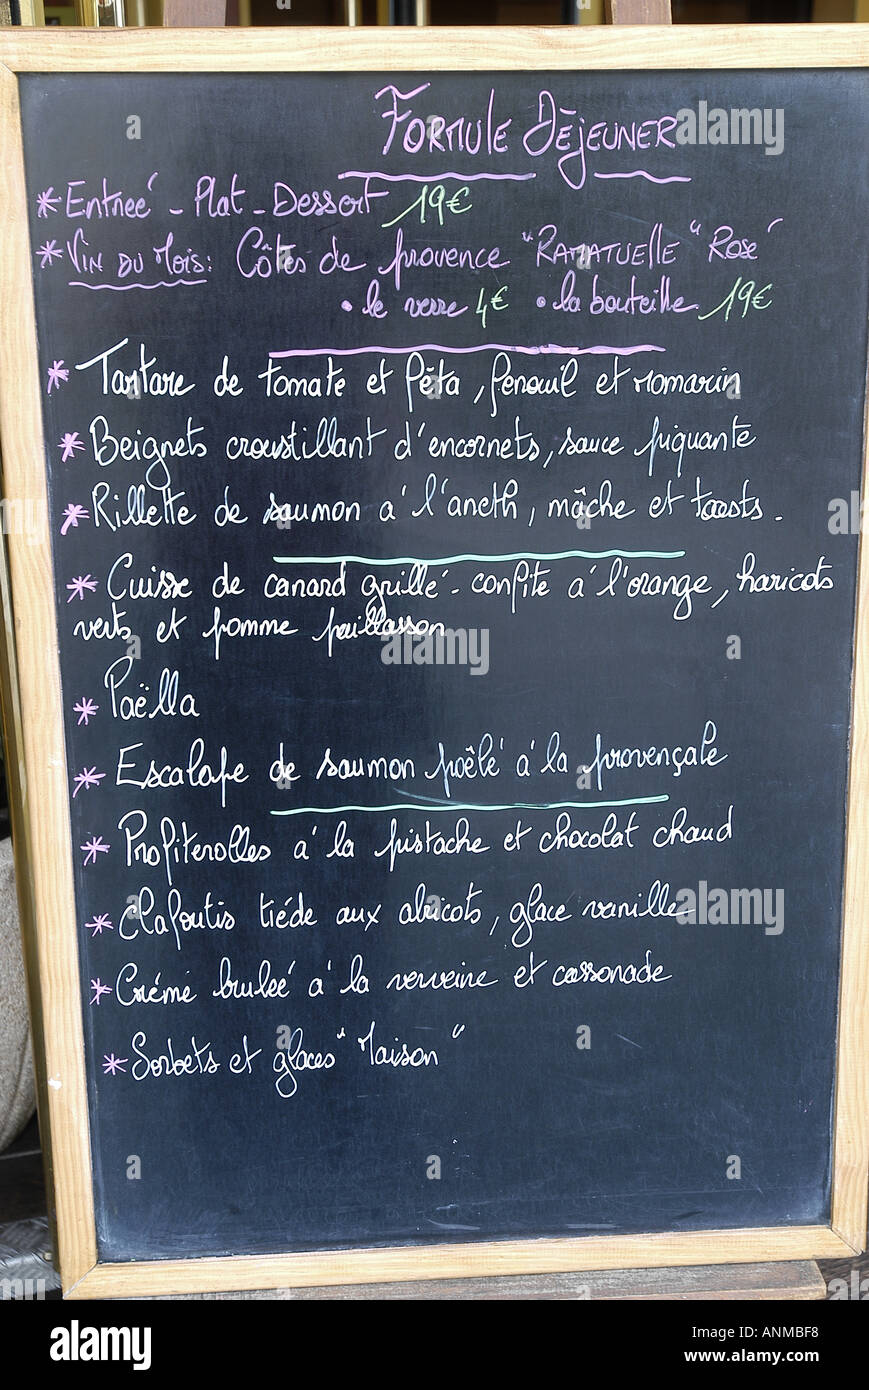 Formule Déjeuner
* Entreé - Plat - Dessert 19€
* Vin du Mois : Côtes de provence "RAMATUELLE" Rosé
• le verre 4€ • la bouteille 19€
* Tartare de tomate et fêta, fenouil et romarin
* Beignets croustillant d'encornets, sauce piquante
* Rillette de saumon a' l'aneth, mâche et toasts.
* Cuisse de canard grillé - confite a' l'orange, haricots
verts et pomme paillasson
* Paëlla
* Escalope de saumon poêlé a' la provençale
* Profiterolles a' la pistache et chocolat chaud
* Clafoutis tiéde aux abricots, glace vanille
* Crémé bruleé a' la verveine et cassonade
* Sorbets et glaces "Maison"
alamy
Image ID: ANMBF8
www.alamy.com